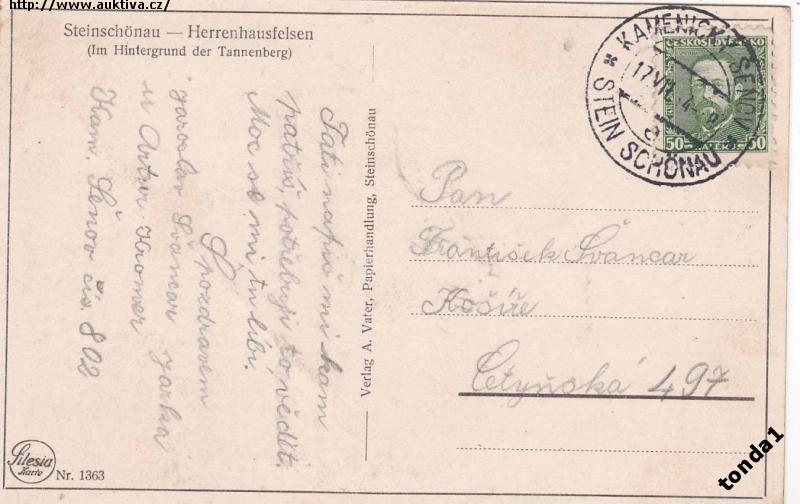 http://www.auktiva.cz/
Steinschönau — Herrenhausfelsen
(Im Hintergrund der Tannenberg)
Tati napiš mi kam
patříš, potřebuji to vědět.
Moc se mi tu líbí.
S pozdravem
Jaroslav Švancar Jarka
u Artur Kromer
Kam. Šenov čís. 802
Verlag A. Vater, Papierhandlung, Steinschönau
KAMENICKÝ ŠENOV
STEIN SCHÖNAU
17.VII
ČESKOSLOVENSKO
50 HALÉŘŮ 50
Pan
František Švancar
Košíře
Cetyňská 497
Silesia
Karte
Nr. 1363
tonda1